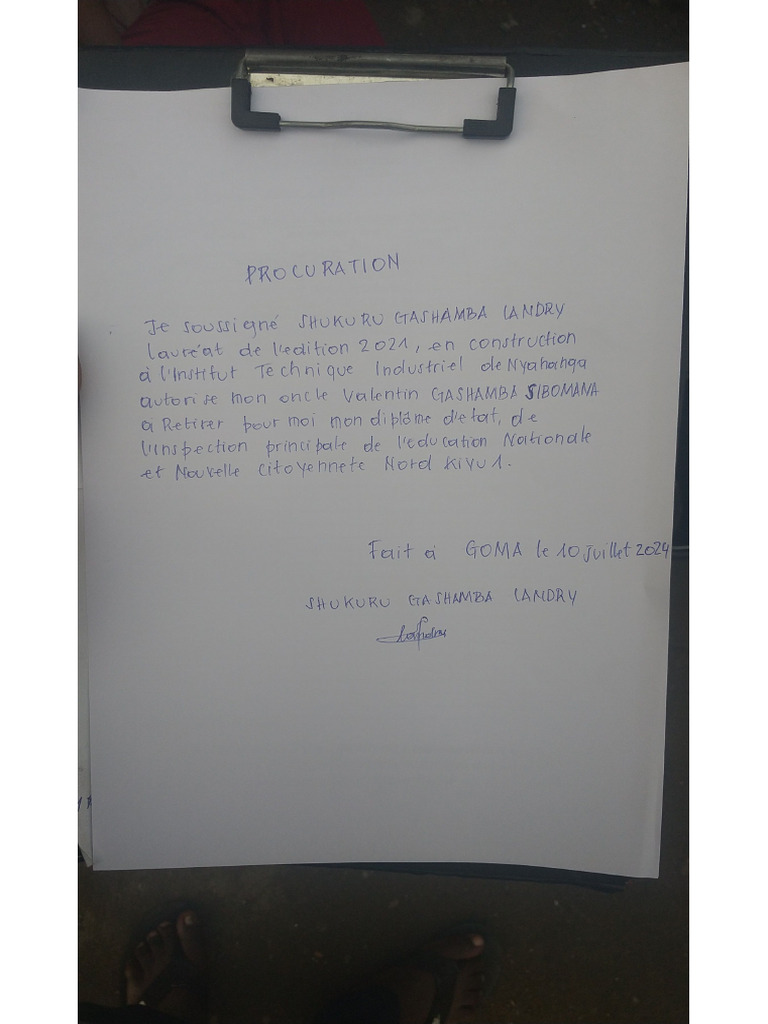 PROCURATION
Je soussigné SHUKURU GASHAMBA LANDRY
lauréat de l'édition 2021, en construction
à l'Institut Technique Industriel de Nyahanga
autorise mon oncle Valentin GASHAMBA SIBOMANA
à Retirer pour moi mon diplôme d'état, de
l'inspection principale de l'education Nationale
et Nouvelle citoyennete Nord Kivu 1.
Fait à GOMA le 10 juillet 2024
SHUKURU GASHAMBA LANDRY